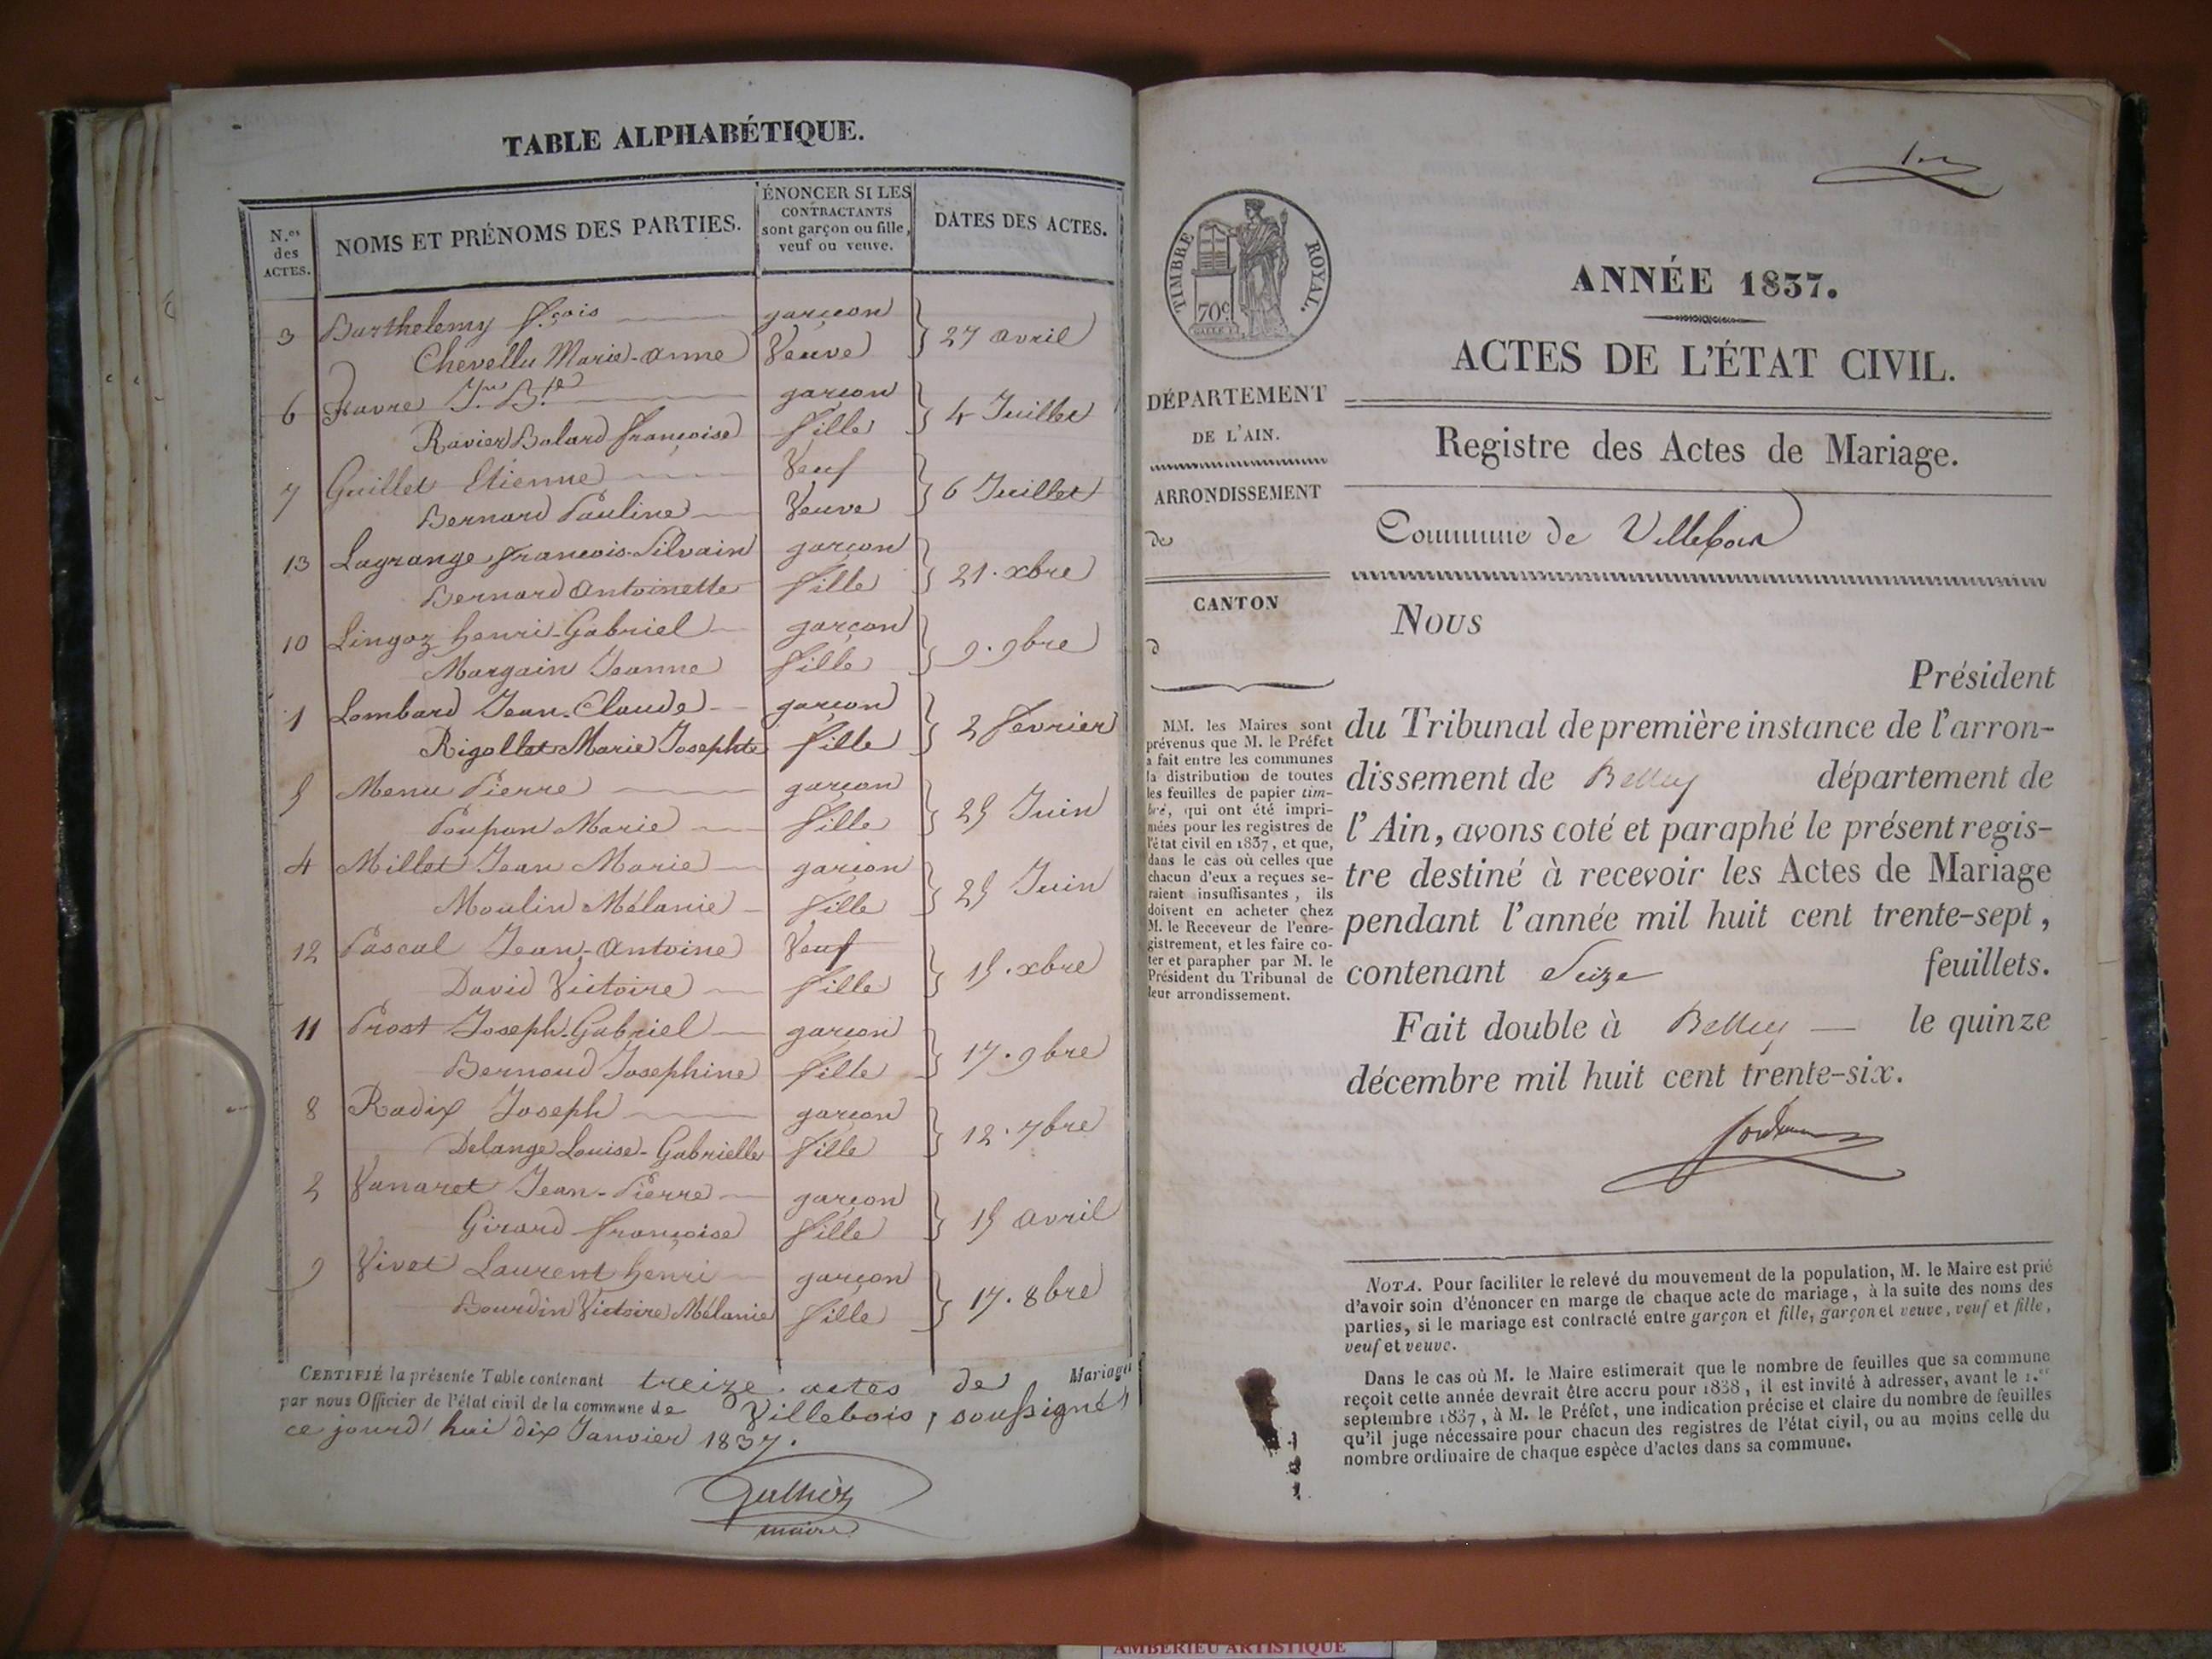 TABLE ALPHABÉTIQUE.
N.os des ACTES.
NOMS ET PRÉNOMS DES PARTIES.
ÉNONCER SI LES
CONTRACTANTS
sont garçon ou fille,
veuf ou veuve.
DATES DES ACTES.
3 Barthelemy f.çois garçon
Chevellu Marie-Anne Veuve } 27 avril
6 Favre J.n B.te garçon
Ravier Bolard françoise fille } 4 Juillet
7 Guillet Etienne Veuf
Bernard Pauline Veuve } 6 Juillet
13 Lagrange françois-Silvain garçon
Bernard Antoinette fille } 21. xbre
10 Lingoz henri-Gabriel garçon
Margain Jeanne fille } 9. 9bre
1 Lombard Jean-Claude garçon
Rigollet Marie Josephte fille } 2 février
5 Menu Pierre garçon
Poupon Marie fille } 25 Juin
4 Millet Jean Marie garçon
Moulin Mélanie fille } 25 Juin
12 Pascal Jean-Antoine Veuf
David Victoire fille } 15. xbre
11 Prost Joseph-Gabriel garçon
Bernoud Josephine fille } 17. 9bre
8 Radix Joseph garçon
Delange Louise-Gabrielle fille } 12. 7bre
2 Vanaret Jean-Pierre garçon
Girard françoise fille } 15 avril
9 Vivet Laurent henri garçon
Bourdin Victoire Mélanie fille } 17. 8bre
CERTIFIÉ la présente Table contenant treize actes de Mariages
par nous Officier de l'état civil de la commune de Villebois, soussigné
ce jourd'hui dix Janvier 1837.
maire
TIMBRE ROYAL.
70c
DÉPARTEMENT
DE L'AIN.
ARRONDISSEMENT
de
CANTON
d
MM. les Maires sont
prévenus que M. le Préfet
a fait entre les communes
la distribution de toutes
les feuilles de papier tim-
bré, qui ont été impri-
mées pour les registres de
l'état civil en 1837, et que,
dans le cas où celles que
chacun d'eux a reçues se-
raient insuffisantes, ils
doivent en acheter chez
M. le Receveur de l'enre-
gistrement, et les faire co-
ter et parapher par M. le
Président du Tribunal de
leur arrondissement.
ANNÉE 1837.
ACTES DE L'ÉTAT CIVIL.
Registre des Actes de Mariage.
Commune de Villebois
Nous
Président
du Tribunal de première instance de l'arron-
dissement de Belley département de
l'Ain, avons coté et paraphé le présent regis-
tre destiné à recevoir les Actes de Mariage
pendant l'année mil huit cent trente-sept,
contenant Seize feuillets.
Fait double à Belley — le quinze
décembre mil huit cent trente-six.
NOTA. Pour faciliter le relevé du mouvement de la population, M. le Maire est prié
d'avoir soin d'énoncer en marge de chaque acte de mariage, à la suite des noms des
parties, si le mariage est contracté entre garçon et fille, garçon et veuve, veuf et fille,
veuf et veuve.
Dans le cas où M. le Maire estimerait que le nombre de feuilles que sa commune
reçoit cette année devrait être accru pour 1838, il est invité à adresser, avant le 1.er
septembre 1837, à M. le Préfet, une indication précise et claire du nombre de feuilles
qu'il juge nécessaire pour chacun des registres de l'état civil, ou au moins celle du
nombre ordinaire de chaque espèce d'actes dans sa commune.
AMBERIEU ARTISTIQUE